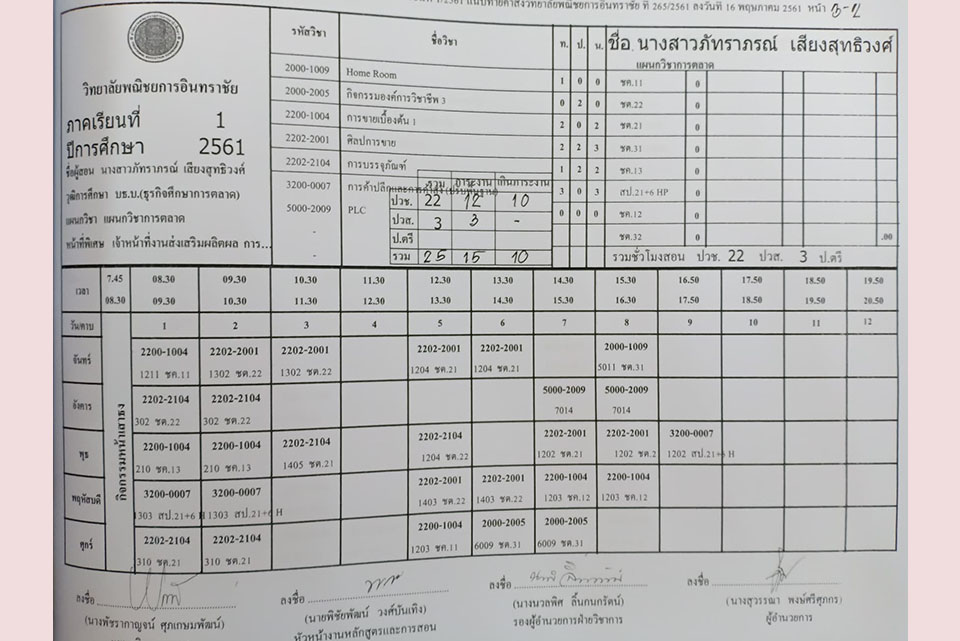 แนบท้ายคำสั่งวิทยาลัยพณิชยการอินทราชัย ที่ 265/2561 ลงวันที่ 16 พฤษภาคม 2561 หน้า
วิทยาลัยพณิชยการอินทราชัย
ภาคเรียนที่ 1
ปีการศึกษา 2561
ชื่อผู้สอน นางสาวภัทราภรณ์ เสียงสุทธิวงศ์
วุฒิการศึกษา บธ.บ.(ธุรกิจศึกษาการตลาด)
แผนกวิชา แผนกวิชาการตลาด
หน้าที่พิเศษ เจ้าหน้าที่งานส่งเสริมผลิตผล การ...
รหัสวิชา ชื่อวิชา ท. ป. น.
2000-1009 Home Room 1 0 0
2000-2005 กิจกรรมองค์การวิชาชีพ 3 0 2 0
2200-1004 การขายเบื้องต้น 1 2 0 2
2202-2001 ศิลปการขาย 2 2 3
2202-2104 การบรรจุภัณฑ์ 1 2 2
3200-0007 การค้าปลีกและการค้าส่ง (ปรับพื้นฐาน) 3 0 3
5000-2009 PLC 0 0 0
-
-
รวม ภาระงาน เกินภาระงาน
ปวช. 22 12 10
ปวส. 3 3 -
ป.ตรี
รวม 25 15 10
ชื่อ นางสาวภัทราภรณ์ เสียงสุทธิวงศ์
แผนกวิชาการตลาด
ชต.11 0
ชต.22 0
ชต.21 0
ชต.31 0
ชต.13 0
สป.21+6 HP 0
ชต.12 0
ชต.32 0 .00
รวมชั่วโมงสอน ปวช. 22 ปวส. 3 ป.ตรี
เวลา 7.45 08.30 09.30 10.30 11.30 12.30 13.30 14.30 15.30 16.50 17.50 18.50 19.50
08.30 09.30 10.30 11.30 12.30 13.30 14.30 15.30 16.30 17.50 18.50 19.50 20.50
วัน/คาบ 1 2 3 4 5 6 7 8 9 10 11 12
กิจกรรมหน้าเสาธง
จันทร์ 2200-1004 2202-2001 2202-2001 2202-2001 2202-2001 2000-1009
1211 ชต.11 1302 ชต.22 1302 ชต.22 1204 ชต.21 1204 ชต.21 5011 ชต.31
อังคาร 2202-2104 2202-2104 5000-2009 5000-2009
302 ชต.22 302 ชต.22 7014 7014
พุธ 2200-1004 2200-1004 2202-2104 2202-2104 2202-2001 2202-2001 3200-0007
210 ชต.13 210 ชต.13 1405 ชต.21 1204 ชต.22 1202 ชต.21 1202 ชต.2 1202 สป.21+6 H
พฤหัสบดี 3200-0007 3200-0007 2202-2001 2202-2001 2200-1004 2200-1004
1303 สป.21+6 H 1303 สป.21+6 H 1403 ชต.22 1403 ชต.22 1203 ชต.12 1203 ชต.12
ศุกร์ 2202-2104 2202-2104 2200-1004 2000-2005 2000-2005
310 ชต.21 310 ชต.21 1203 ชต.11 6009 ชต.31 6009 ชต.31
ลงชื่อ ลงชื่อ ลงชื่อ ลงชื่อ
(นางพัชรากาญจน์ ศุภเกษมพัฒน์) (นายพิชัยพัฒน์ วงศ์บันเทิง) (นางนวลพิศ ลิ้นกนกรัตน์) (นางสุวรรณา พงษ์ศรีศุภกร)
หัวหน้างานหลักสูตรและการสอน รองผู้อำนวยการฝ่ายวิชาการ ผู้อำนวยการ